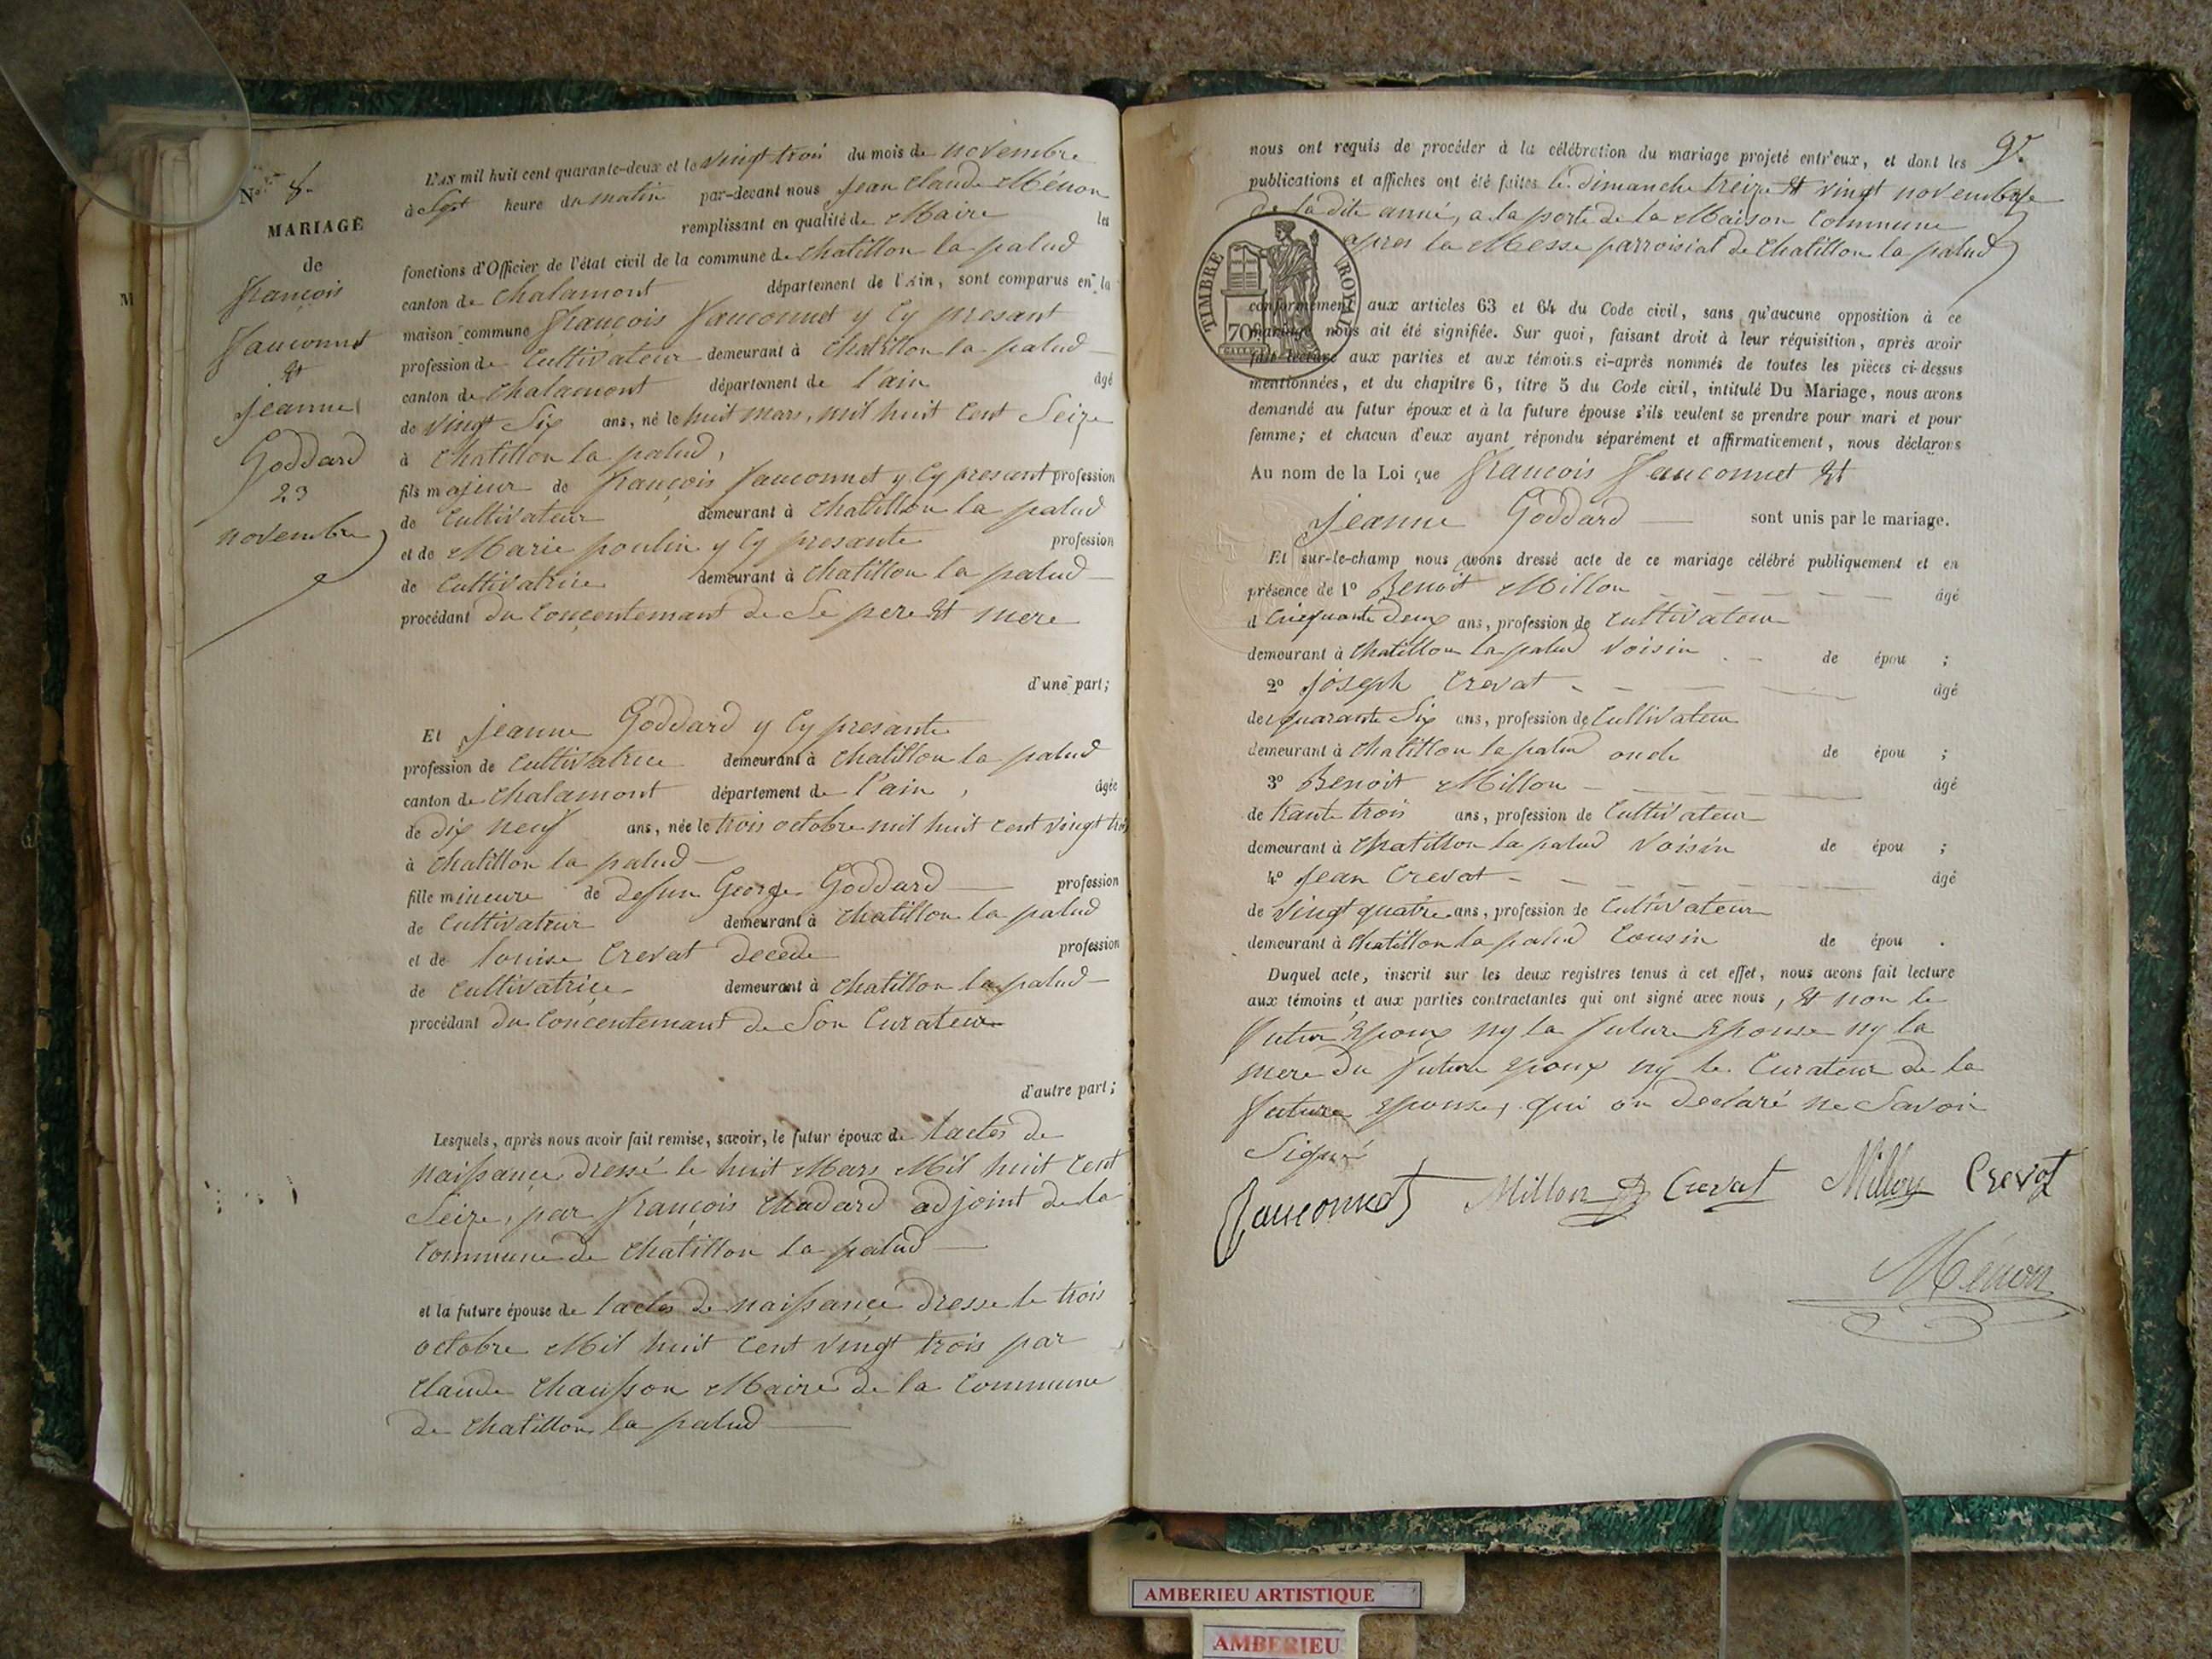 No. 8.
MARIAGE
de
françois
fauconnet
et
jeanne
Goddard
23
novembre
L'AN mil huit cent quarante-deux et le vingt trois du mois de novembre
à Sept heure du matin par-devant nous jean Claude Ménon
remplissant en qualité de Maire les
fonctions d'Officier de l'état civil de la commune de chatillon la palud
canton de chalamont département de l'Ain, sont comparus en la
maison commune françois fauconnet y Cy presant
profession de Cultivateur demeurant à chatillon la palud
canton de chalamont département de l'ain âgé
de vingt Six ans, né le huit mars, mil huit Cent Seize
à chatillon la palud,
fils majeur de françois fauconnet y Cy presant profession
de Cultivateur demeurant à chatillon la palud
et de Marie poulin y Cy presante profession
de Cultivatrice demeurant à chatillon la palud
procédant du Concentemant de Se pere et mere
d'une part;
Et jeanne Goddard y Cy presante
profession de Cultivatrice demeurant à chatillon la palud
canton de chalamont département de l'ain, âgée
de dix neuf ans, née le trois octobre mil huit cent vingt trois
à chatillon la palud
fille mineure de defun George Goddard profession
de Cultivateur demeurant à chatillon la palud
et de louise Crevat decede profession
de Cultivatrice demeurant à chatillon la palud
procédant du Concentemant de Son Curateur
d'autre part;
Lesquels, après nous avoir fait remise, savoir, le futur époux de lactes de
naissance dressé le huit Mars Mil huit Cent
Seize, par françois chadard adjoint de la
Commune de chatillon la palud
et la future épouse de lactes de naissance dresse le trois
octobre Mil huit Cent vingt trois par
claude chausson Maire de la Commune
de chatillon la palud
9e.
nous ont requis de procéder à la célébration du mariage projeté entr'eux, et dont les
publications et affiches ont été faites le dimanche treize et vingt novembre
de la dite anné, a la porte de la Maison Commune
apres la Messe parroisial de chatillon la palud
TIMBRE ROYAL
70c
conformément aux articles 63 et 64 du Code civil, sans qu'aucune opposition à ce
mariage nous ait été signifiée. Sur quoi, faisant droit à leur réquisition, après avoir
fait lecture aux parties et aux témoins ci-après nommés de toutes les pièces ci-dessus
mentionnées, et du chapitre 6, titre 5 du Code civil, intitulé Du Mariage, nous avons
demandé au futur époux et à la future épouse s'ils veulent se prendre pour mari et pour
femme; et chacun d'eux ayant répondu séparément et affirmativement, nous déclarons
Au nom de la Loi que francois fauconnet et
jeanne Goddard sont unis par le mariage.
Et sur-le-champ nous avons dressé acte de ce mariage célébré publiquement et en
présence de 1° Benoit Millon âgé
d Cinquante Deux ans, profession de Cultivateur
demeurant à chatillon la palud voisin de épou ;
2° joseph Crevat âgé
de quarante Six ans, profession de Cultivateur
demeurant à chatillon la palud oncle de épou ;
3° Benoit Millon âgé
de trante trois ans, profession de Cultivateur
demeurant à chatillon la palud voisin de épou ;
4° jean Crevat âgé
de vingt quatre ans, profession de Cultivateur
demeurant à chatillon la palud Cousin de épou .
Duquel acte, inscrit sur les deux registres tenus à cet effet, nous avons fait lecture
aux témoins et aux parties contractantes qui ont signé avec nous, et non le
futur Epoux ny la future Epouse ny la
mere du future epoux ny le Curateur de la
future Epouse, qui on declaré ne Savoir
Signé
fauconnet Millon B Crevat Millon Crevat
Ménon
AMBERIEU ARTISTIQUE
AMBERIEU